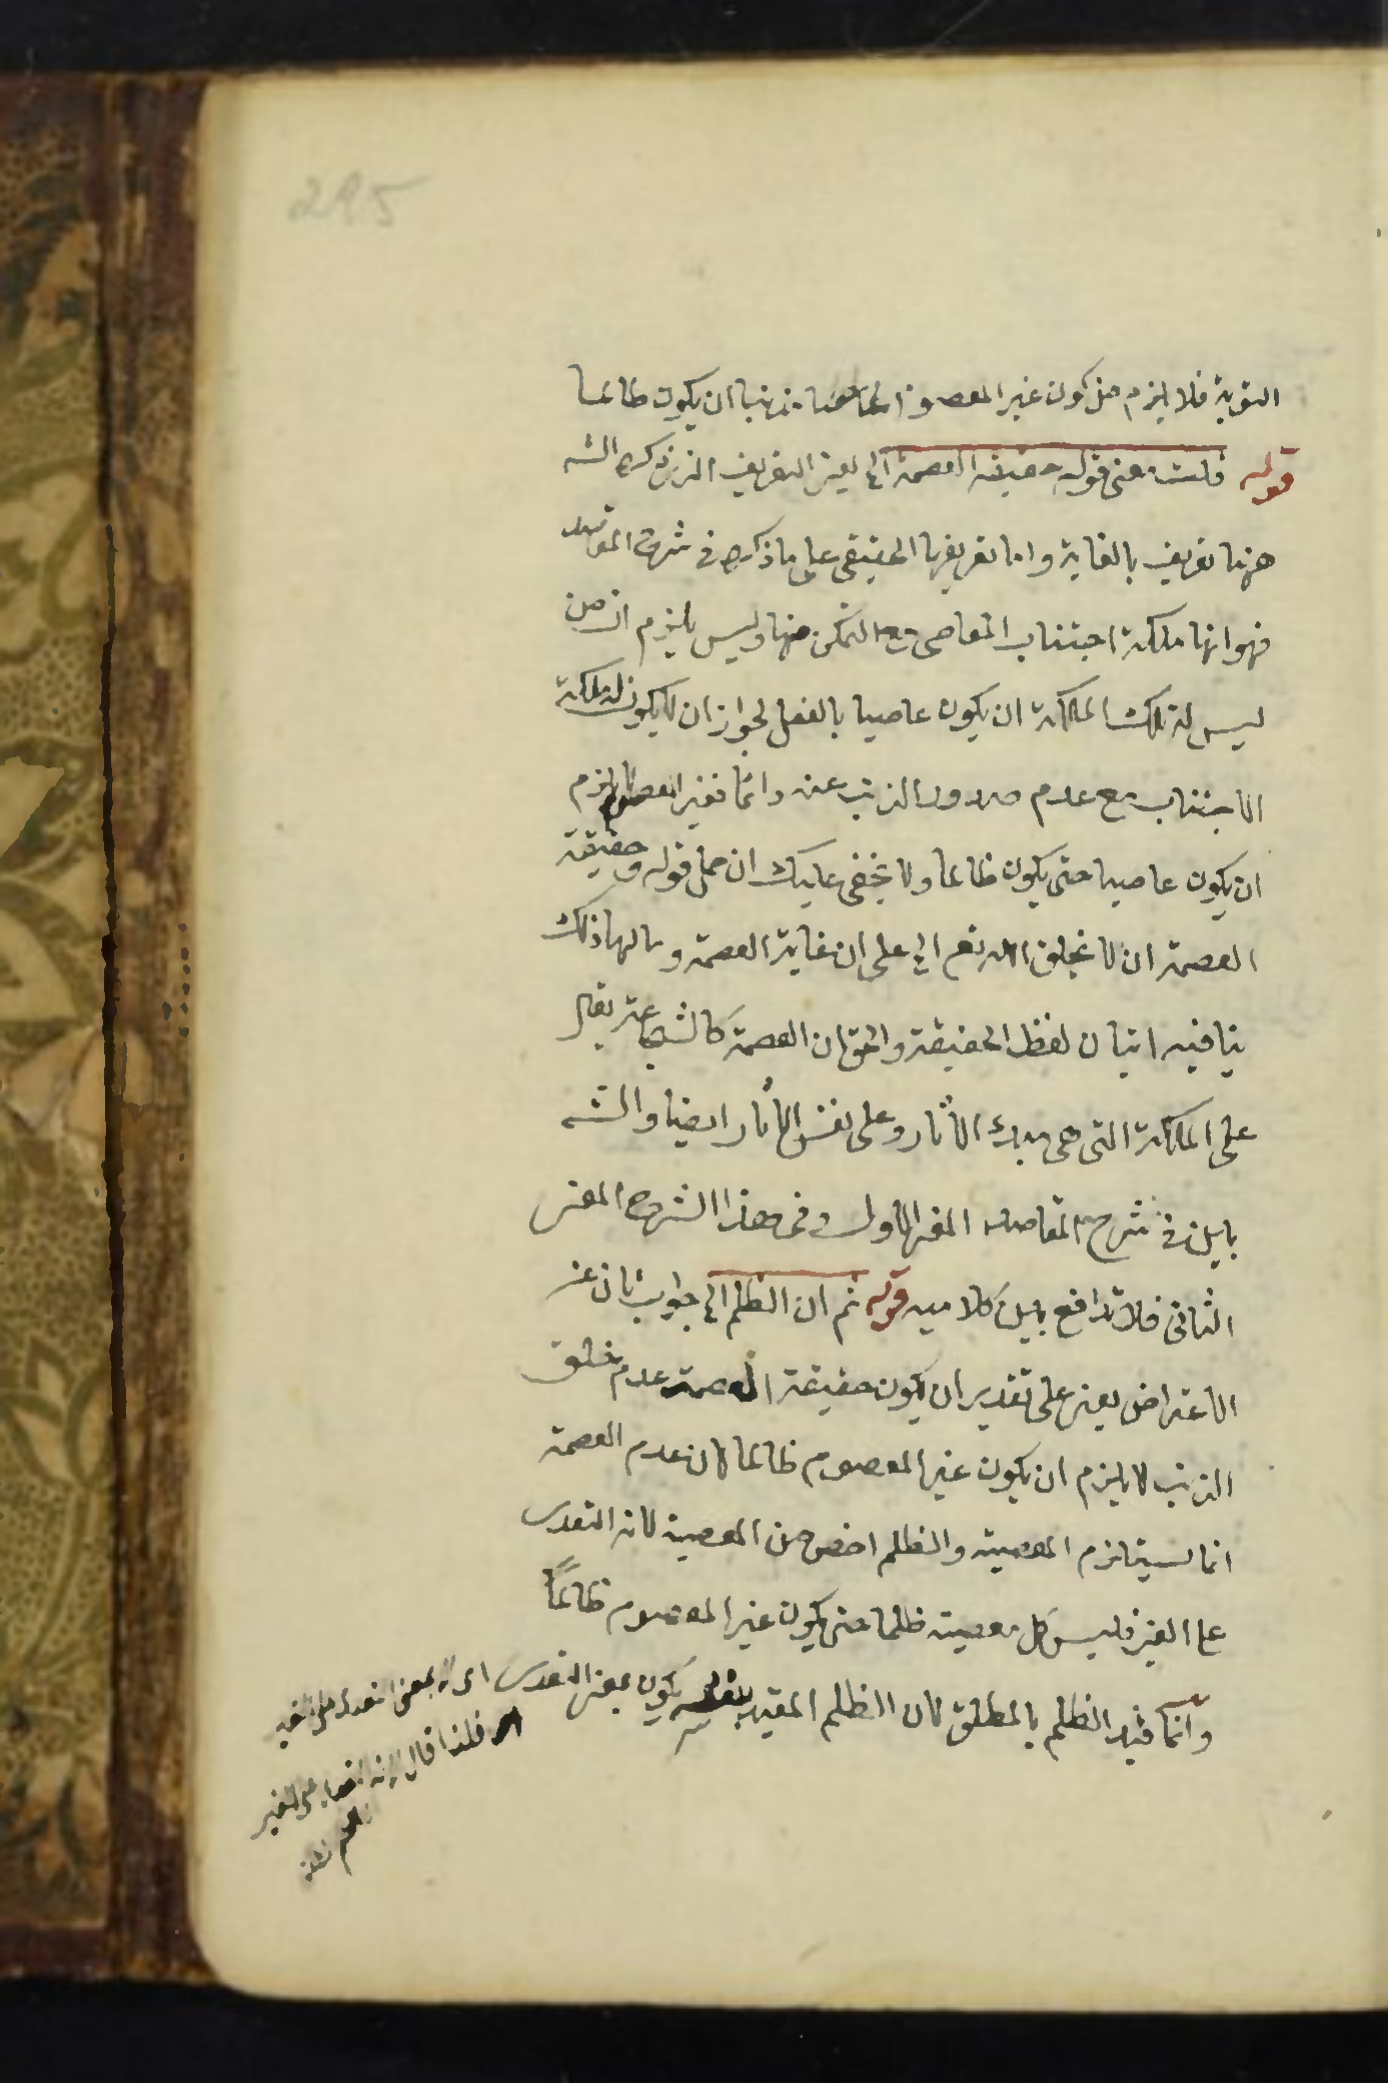 295
التوبة فلا يلزم من كون غير المعصوم عاصيا مذنبا ان يكون ظالما
قوله قلت معنى قوله حقيقة العصمة الخ يعنى التعريف الذى ذكره الشـ
ههنا تعريف بالغاية واما تعريفها الحقيقى على ما ذكره فى شرح المقاصد
فهو انها ملكة اجتناب المعاصى مع التمكن منها وليس يلزم ان من
ليس له تلك الملكة ان يكون عاصيا بالفعل لجواز ان لا يكون له ملكة
الاجتناب مع عدم صدور الذنب عنه دائما فغير المعصوم لا يلزم
ان يكون عاصيا حتى يكون ظالما ولا يخفى عليك ان حمل قوله وحقيقة
العصمة ان لا يخلق الله تع الخ على ان غاية العصمة ومالها ذلك
ينافيه اتيان لفظ الحقيقة والحق ان العصمة كالشجاعة يقال
على الملكة التى هى مبدء الآثار وعلى نفس الآثار ايضا والشـ
بين فى شرح المقاصد المعنى الاول وفى هذا الشرح المعنى
الثانى فلا تدافع بين كلاميه قوله ثم ان الظلم الخ جواب ثان عن
الاعتراض يعنى على تقدير ان يكون حقيقة العصمة عدم خلق
الذنب لا يلزم ان يكون غير المعصوم ظالما لان عدم العصمة
انما يستلزم المعصية والظلم اخص من المعصية لانه التعدى
على الغير فليس كل معصية ظلما حتى يكون غير المعصوم ظالمًا
وانما قيد الظلم بالمطلق لان الظلم المقيد يكون بمعنى التعدى
فلذا قال